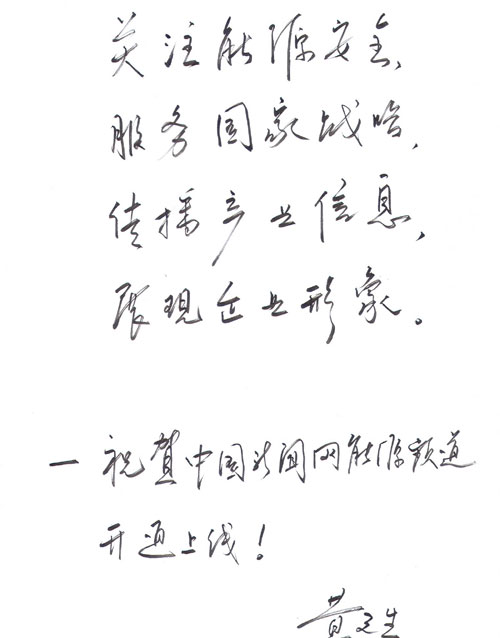 关注能源安全,
服务国家战略,
传播产业信息,
展现企业形象。
一祝贺中国新闻网能源频道
开通上线!
黄
生